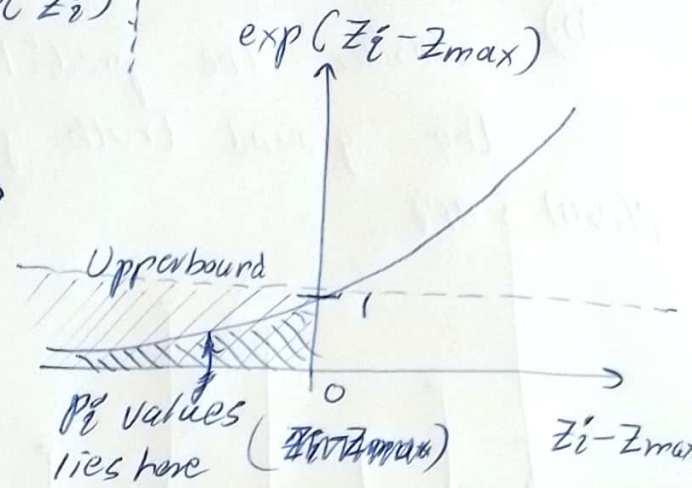 (Zi)
exp(Zi-Zmax)
Upperbound
1
0
Pi values
lies here
(
)
Zi-Zmax